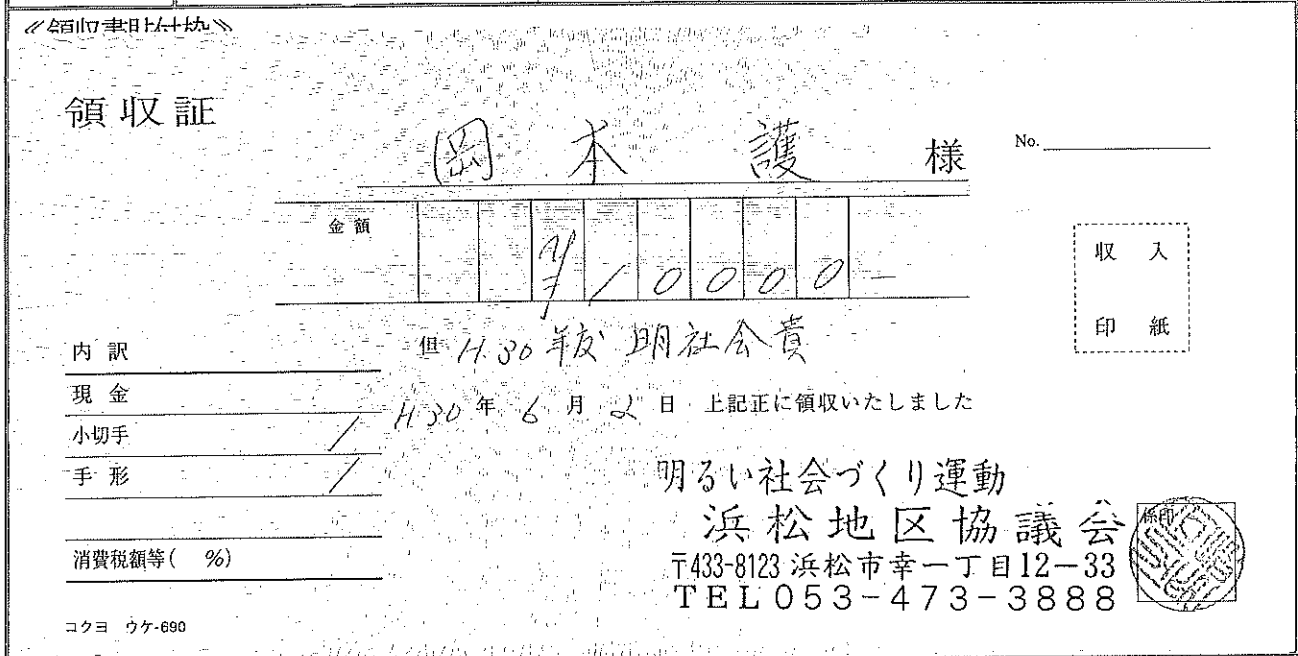 ≪領収書貼付枠≫
領収証
岡本護 様
No.
金額 ¥10000-
収入
印紙
但 H.30年度 明社会費
H30年6月2日 上記正に領収いたしました
内訳
現金
小切手 /
手形 /
消費税額等( %)
明るい社会づくり運動
浜松地区協議会
係印
〒433-8123 浜松市幸一丁目12-33
TEL053-473-3888
コクヨ ウケ-690